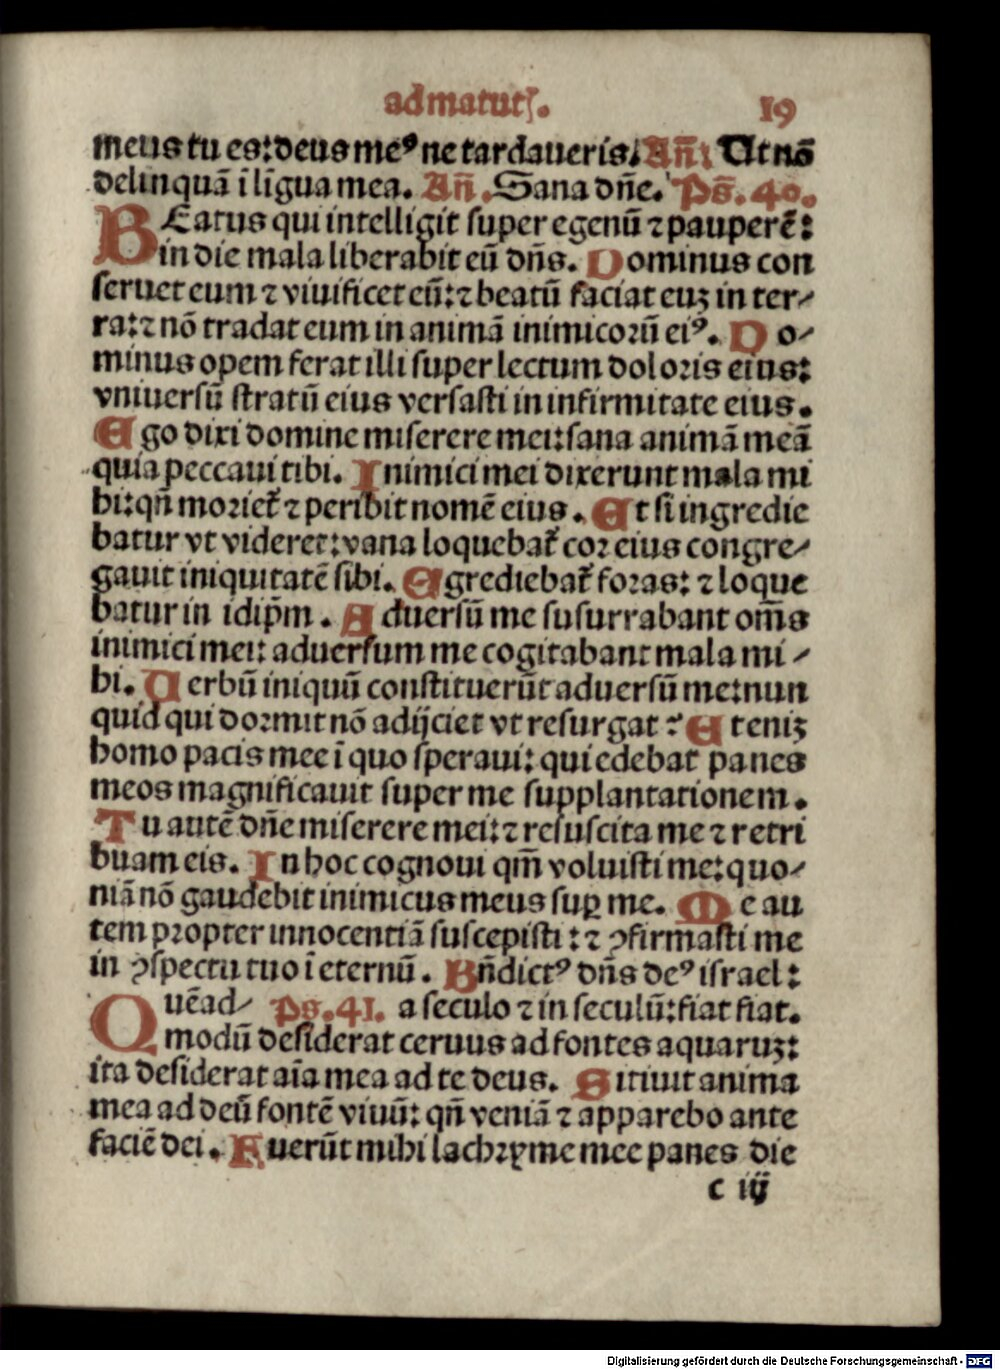 ad matutꝭ.
19
meus tu es: deus meꝰ ne tardaueris. Añ: Ut nō
delinquā ī līgua mea. Añ. Sana dñe. Ps̄. 40.
BEatus qui intelligit super egenū ⁊ pauperē:
in die mala liberabit eū dñs. Dominus con
seruet eum ⁊ viuificet eū: ⁊ beatū faciat euꝫ in ter⸗
ra: ⁊ nō tradat eum in animā inimicorū eiꝰ. Do⸗
minus opem ferat illi super lectum doloris eius:
vniuersū stratū eius versasti in infirmitate eius.
Ego dixi domine miserere mei: sana animā meā
quia peccaui tibi. Inimici mei dixerunt mala mi
bi: qñ moriet̄ ⁊ peribit nomē eius. Et si ingredie
batur vt videret: vana loquebat̄ cor eius congre⸗
gauit iniquitatē sibi. Egrediebat̄ foras: ⁊ loque
batur in idip̄m. Aduersū me susurrabant om̄s
inimici mei: aduersum me cogitabant mala mi⸗
bi. Uerbū iniquū constituerūt aduersū me: nun
quid qui dormit nō adijciet vt resurgat? Eteniꝫ
homo pacis mee ī quo speraui: qui edebat panes
meos magnificauit super me supplantationem.
Tu autē dñe miserere mei: ⁊ resuscita me ⁊ retri
buam eis. In hoc cognoui qm̄ voluisti me: quo⸗
niā nō gaudebit inimicus meus suꝑ me. Me au
tem propter innocentiā suscepisti: ⁊ ꝯfirmasti me
in ꝯspectu tuo ī eternū. Bñdictꝰ dñs deꝰ israel:
Quēad⸗ Ps̄. 41. a seculo ⁊ in seculū: fiat fiat.
modū desiderat ceruus ad fontes aquaruꝫ:
ita desiderat aīa mea ad te deus. Sitiuit anima
mea ad deū fontē viuū: qñ veniā ⁊ apparebo ante
faciē dei. Fuerūt mihi lachryme mee panes die
c iij
Digitalisierung gefördert durch die Deutsche Forschungsgemeinschaft - DFG